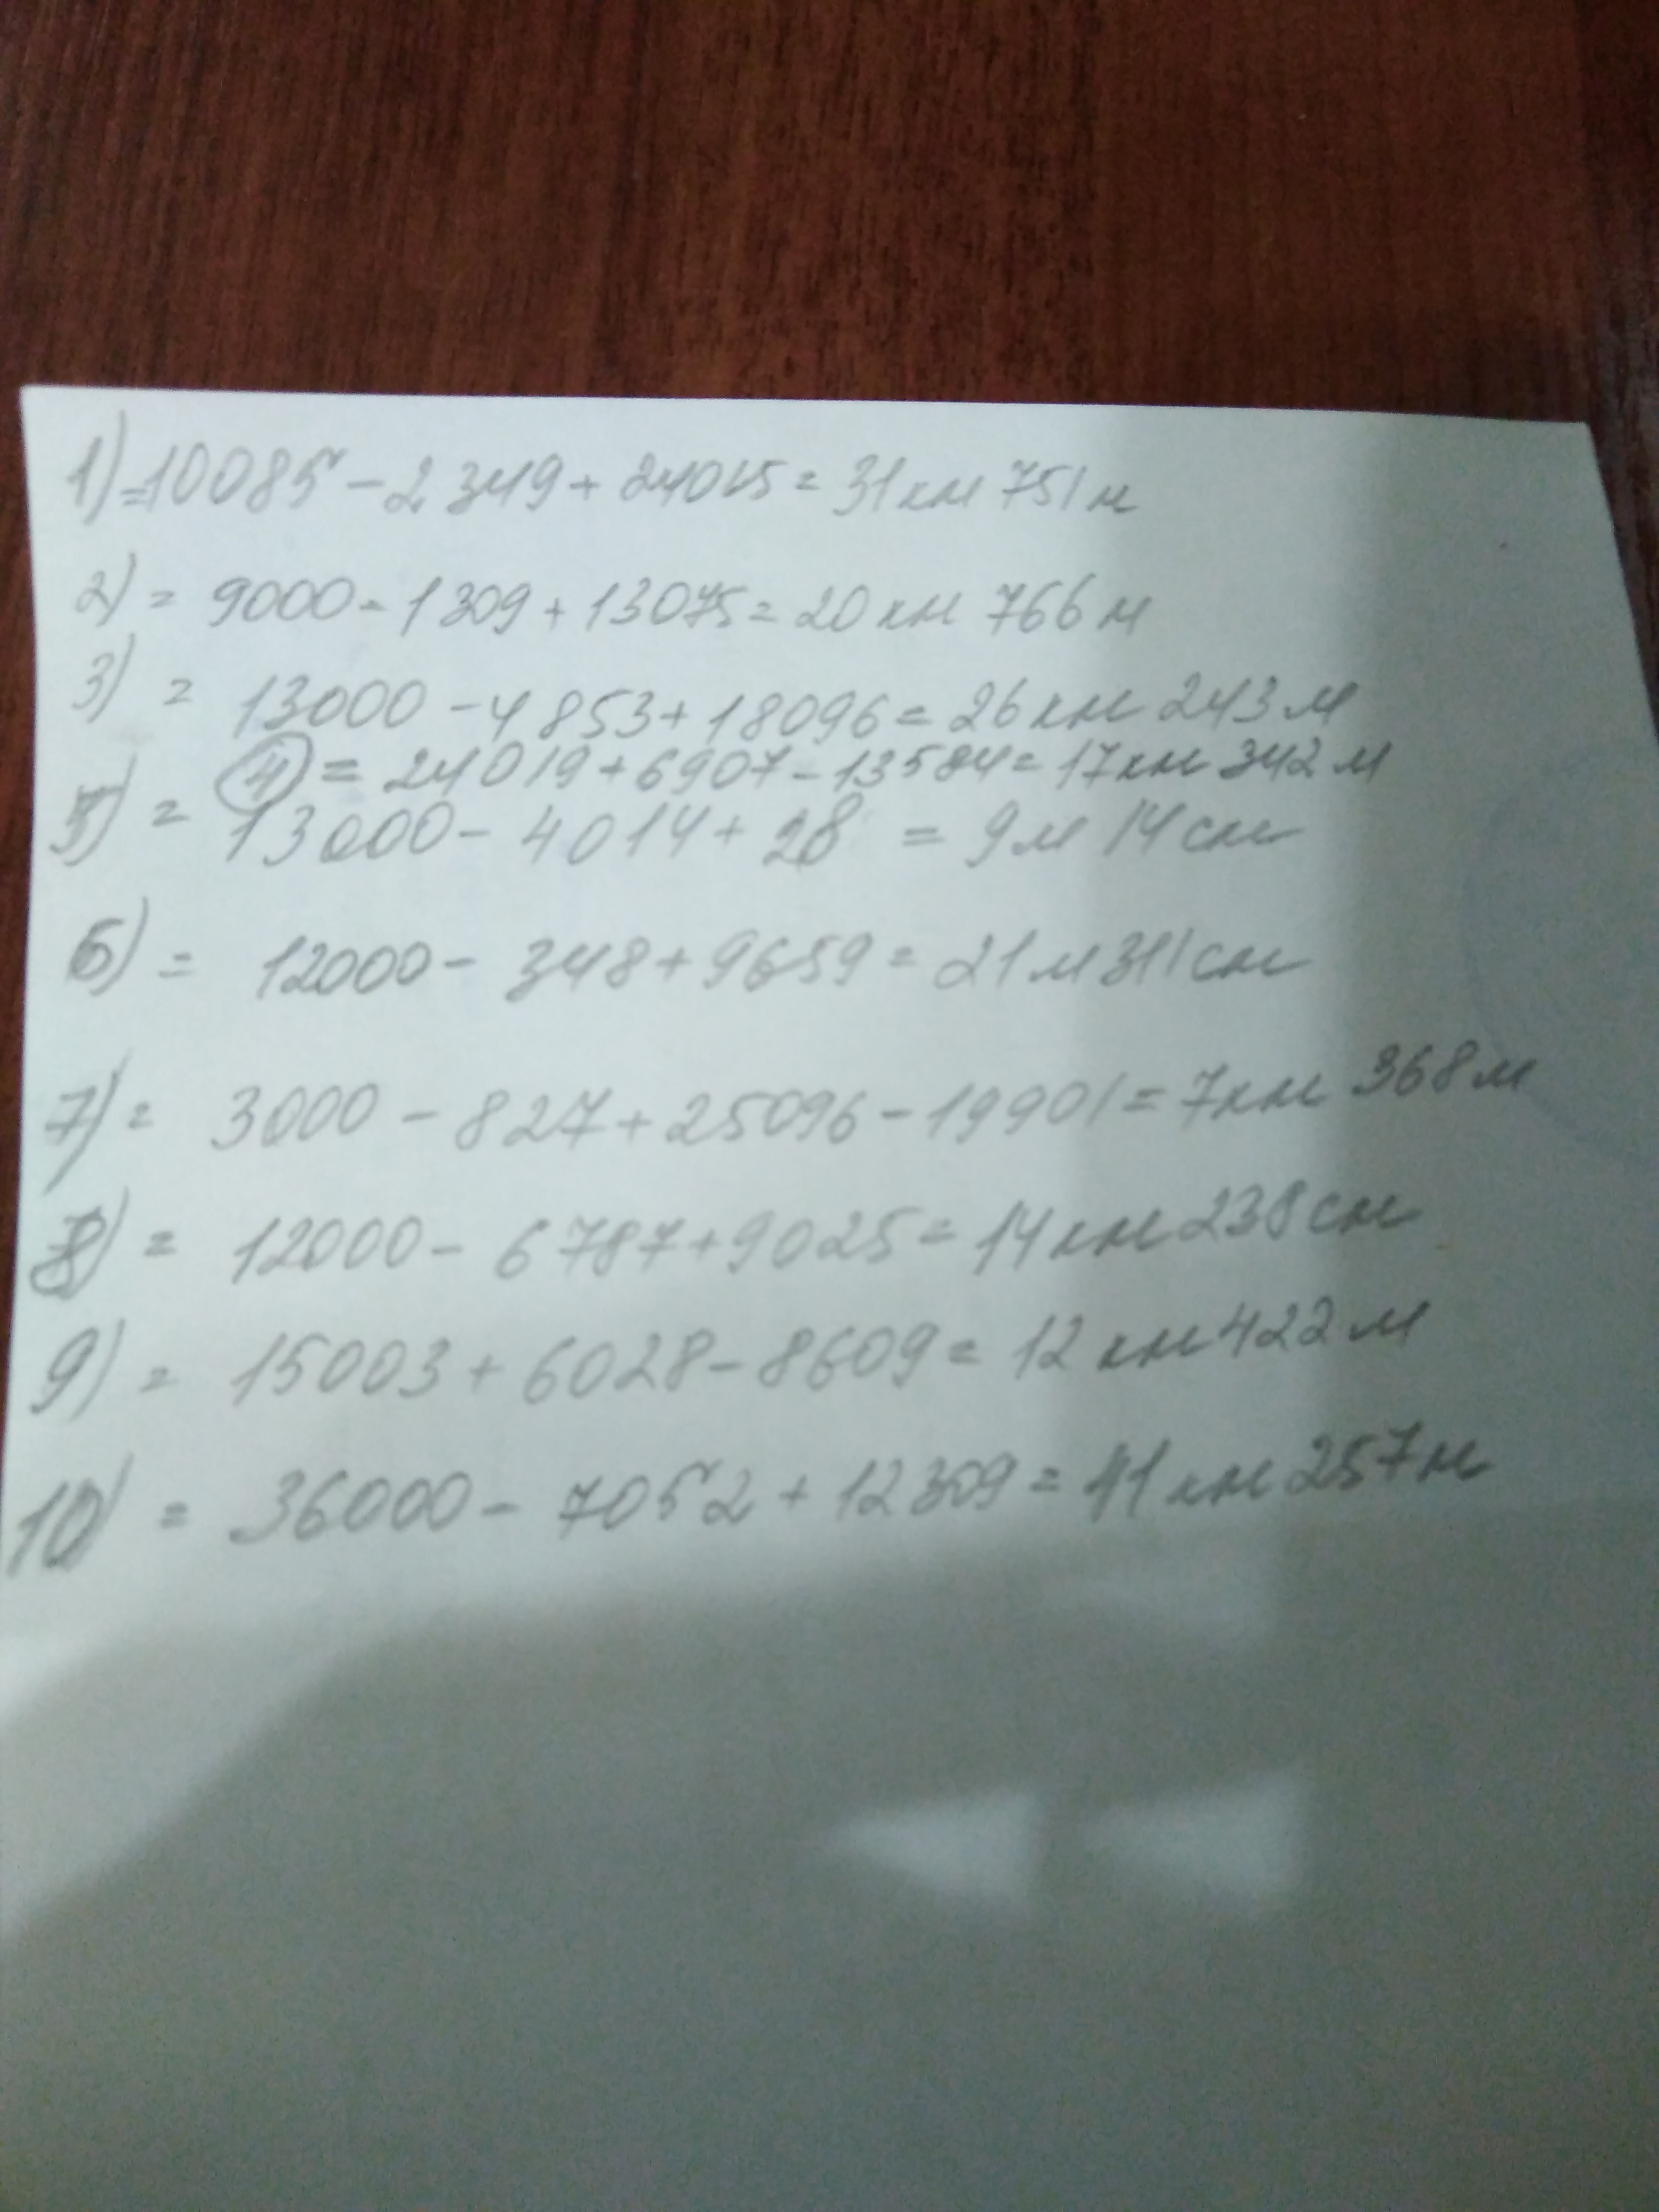 1) = 10085 - 2349 + 24015 = 31 км 751 м
2) = 9000 - 1309 + 13075 = 20 км 766 м
3) = 13000 - 4853 + 18096 = 26 км 243 м
4) = 24019 + 6907 - 13584 = 17 км 342 м
5) = 13000 - 4014 + 28 = 9 м 14 см
6) = 12000 - 348 + 9659 = 21 м 311 см
7) = 3000 - 827 + 25096 - 19901 = 7 км 368 м
8) = 12000 - 6787 + 9025 = 14 км 238 см
9) = 15003 + 6028 - 8609 = 12 км 422 м
10) = 36000 - 7052 + 12309 = 41 км 257 м